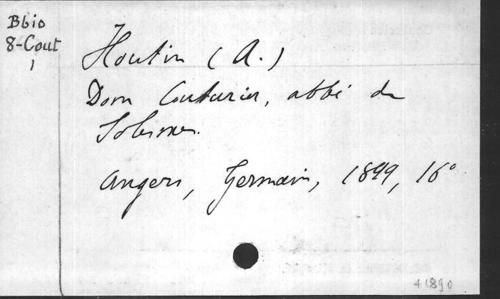 Bbio
8-Cout
1
Houtin (A.)
Dom Couturier, abbé de
Solesmes.
Angers, Germain, 1899, 16°
41890